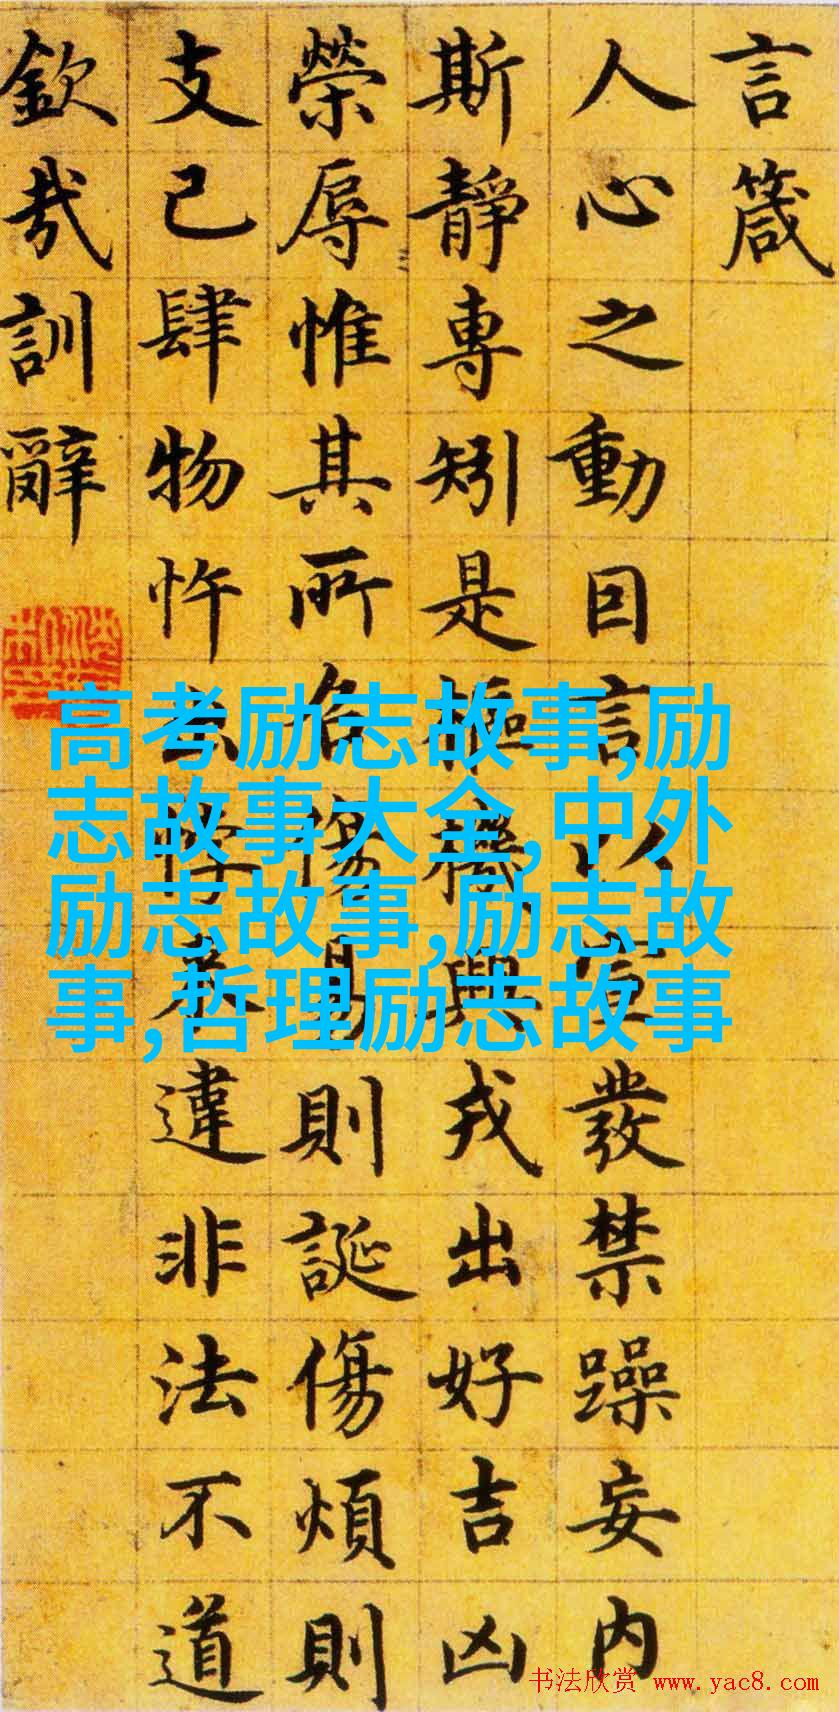 言箴
人心之動因言以宣發禁躁妄内
斯靜專矧是樞機興戎出好吉凶
榮辱惟其所召傷易則誕傷煩則
支己肆物忤出悖来違非法不道
欽哉訓辭
高考励志故事,励
志故事大全,中外
励志故事,励志故
事,哲理励志故事
书法欣赏 www.yac8.com